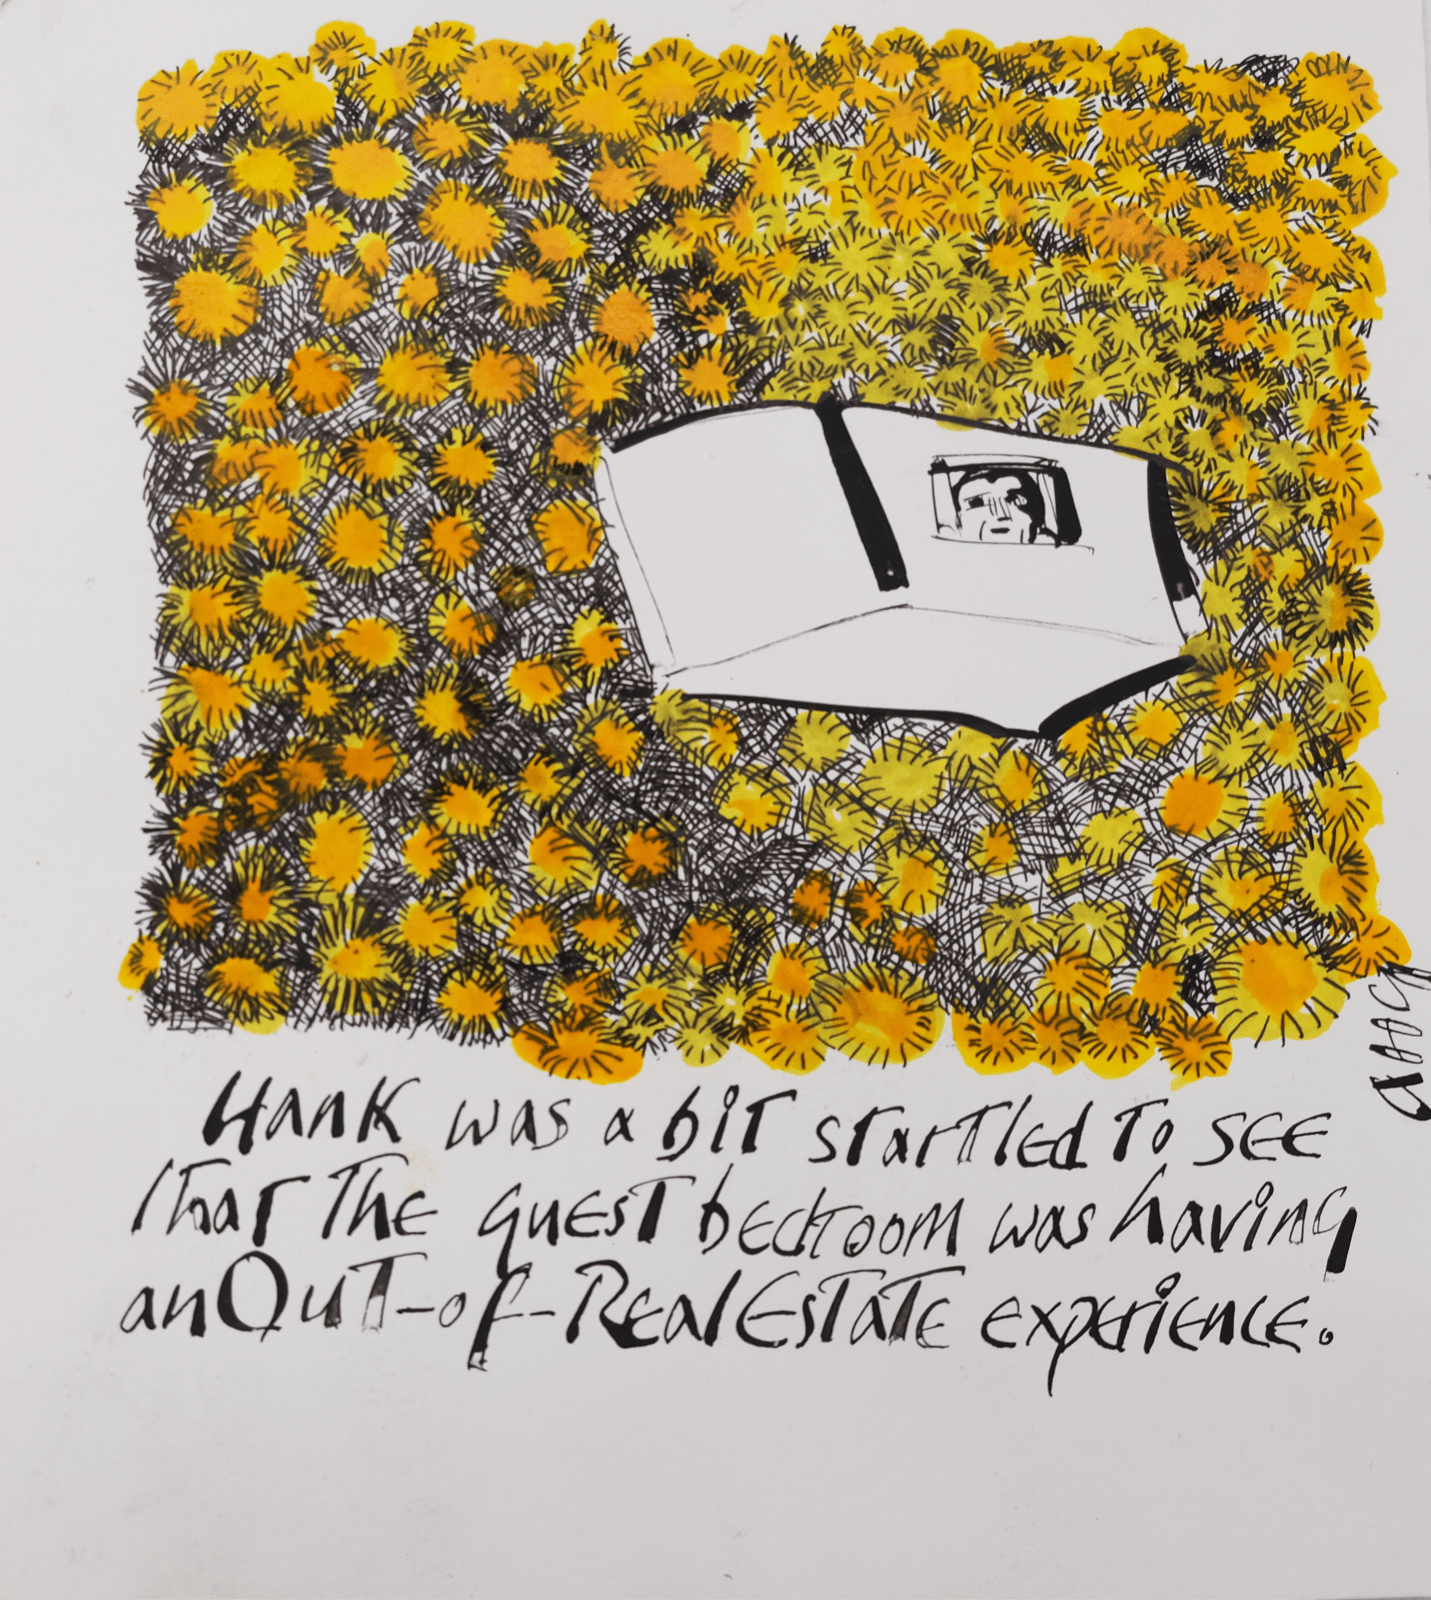 Hank was a bit startled to see
that the guest bedroom was having
an Out-of-Real Estate experience.